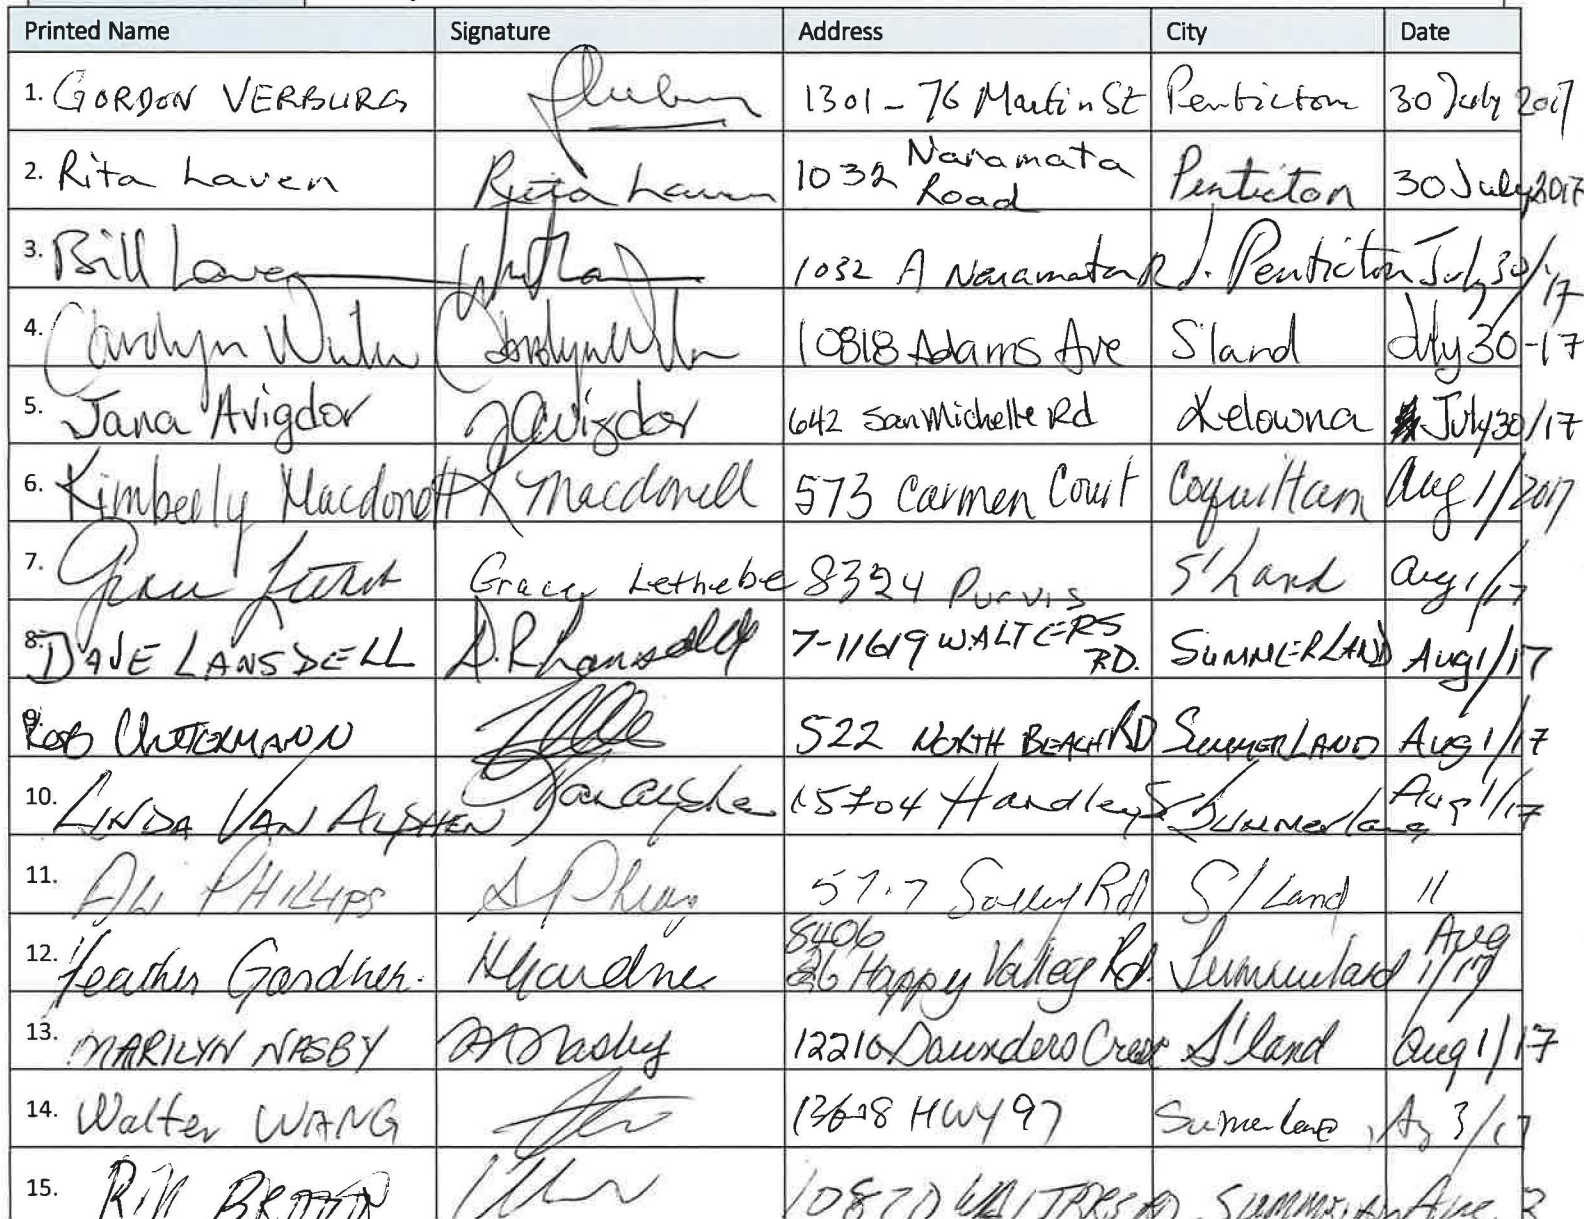 Printed Name Signature Address City Date
1. GORDON VERBURG 1301 - 76 Martin St Penticton 30 July 2017
2. Rita Laven Rita Laven 1032 Naramata Road Penticton 30 July 2017
3. Bill Laven 1032 A Naramata Rd. Penticton July 30/'17
4. Carolyn 10818 Adams Ave S'land July 30-17
5. Jana Avigdor J Avigdor 642 San Michelle Rd Kelowna July 30/17
6. Kimberly Macdonell K Macdonell 573 Carmen Court Coquitlam Aug 1/2017
7. Grace Lethebe 8324 Purvis S'Land Aug 1/17
8. DAVE LANSDELL D.R. Lansdell 7-11619 WALTERS RD. SUMMERLAND Aug 1/17
9. ROB 522 NORTH BEACH RD SUMMERLAND Aug 1/17
10. LINDA VAN ALPHEN 15704 Handley Summerland Aug 1/17
11. ALI PHILLIPS Rd S/Land 11
12. Heather Gardner. H Gardner 8406 Happy Valley Rd. Summerland Aug 1/17
13. MARILYN NASBY M Nasby Saunders Cres S'land Aug 1/17
14. Walter WANG HWY 97 Summerland 3/17
15. Bill